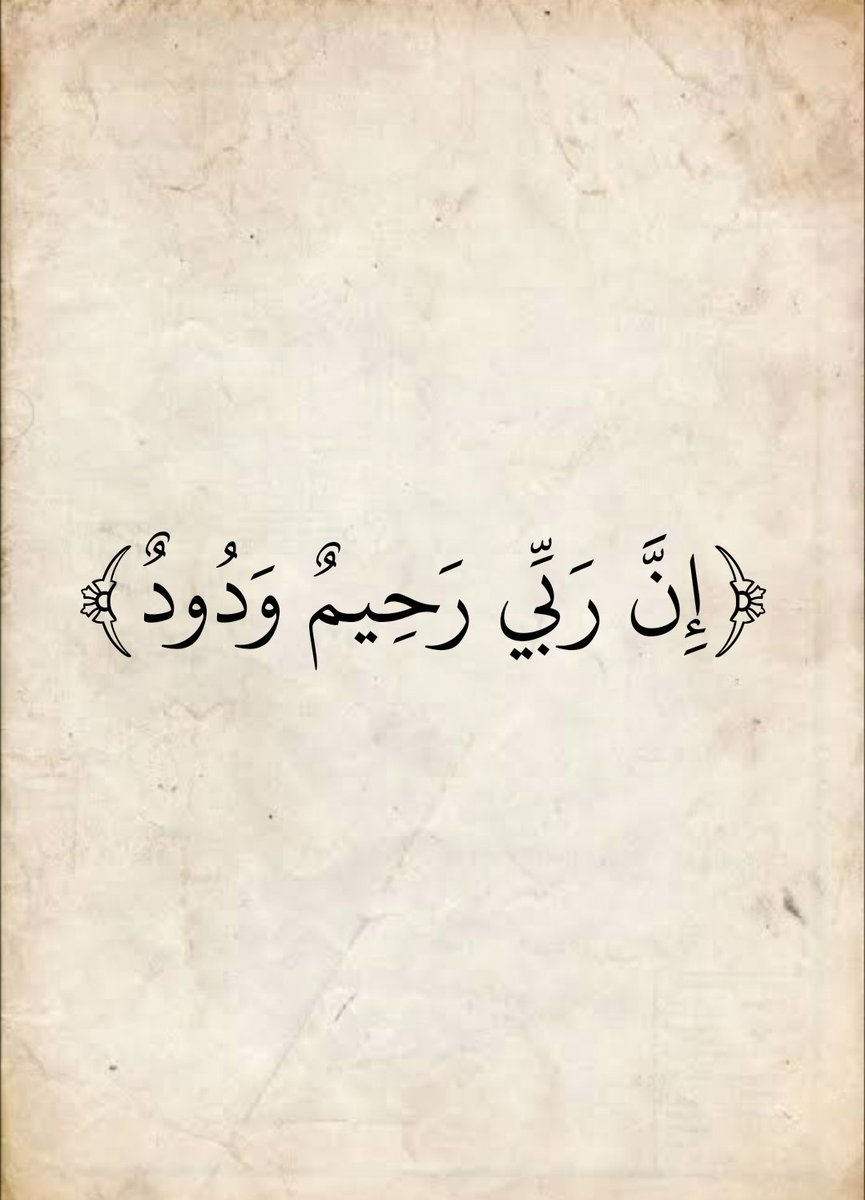 ﴿إِنَّ رَبِّي رَحِيمٌ وَدُودٌ﴾